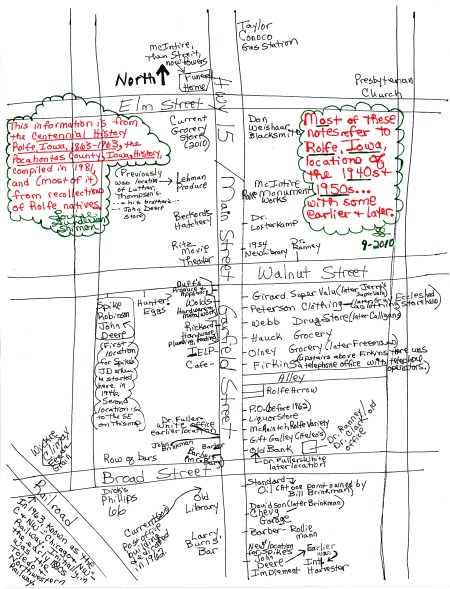 Taylor
Conoco
Gas Station
McIntire,
Than Strait,
now Powers
Funeral
Home
North
Hwy 5
Presbyterian
Church
Elm Street
This information is from
the Centennial History
Rolfe, Iowa, 1863-1963, the
Pocahontas County, Iowa, History,
compiled in 1981,
and (most of it)
from recollections
of Rolfe natives.
Current
Grocery
Store
(2010)
Don
Weishaar
Blacksmith
Most of these
notes refer to
Rolfe, Iowa,
locations of
the 1940s +
1950s...
with some
earlier + later.
9-2010
(Previously
was location
of Luther
Thompson's
+ his brother's
John Deere
store)
Lehman
Produce
Main Street
McIntire
Monument
Works
Beckord's
Hatchery
Dr.
Ritz
Movie
Theater
1954
New Library
Dr.
Ranney
Walnut Street
Duff's
Produce +
Hunter
Eggs
Spike
Robinson
John
Deere
(First
location
for Spike's
JD when he
started
here in
1946.
Second
location is
to the SE
on this map)
Wold's
Hardware +
Rickard
Hardware,
plumbing, heating
IELP
Cafe
Garfield Street
Girard Super Valu (later Jerry's
Super Valu)
Peterson Clothing
Webb Drug Store (later Calligan)
Hauck Grocery
Olney Grocery (later Freeman)
Firkins (upstairs above Firkins there was
a telephone office with telephone
operators.
Alley
Rolfe Arrow
P.O. (before 1962)
Liquor Store
McIntrich Rolfe Variety
Gift Gallery (Helen's)
Old Bank
Dr. Fuller + White
later location
Dr. Ranney/
Dr. Clark old
office
Dr. Fuller-
White office
earlier location
John
Brinkman
Barber
Row of bars
Broad Street
Railroad
In 1963, known as the
Railway. Initially, in
the early 1880s
Northwestern
Railway.
Dick's
Phillips
66
Old
Library
Current
Post office
building
dedicated
in 1962
Larry
Burns'
Bar
Standard
Oil (At one point owned by
Bill Brinkman)
Davidson (later Brinkman)
Chevy
Garage
Barber-Rollie
mann
New location
for Spike's
John
Deere
Implement
Earlier
was
Int.
Harvester